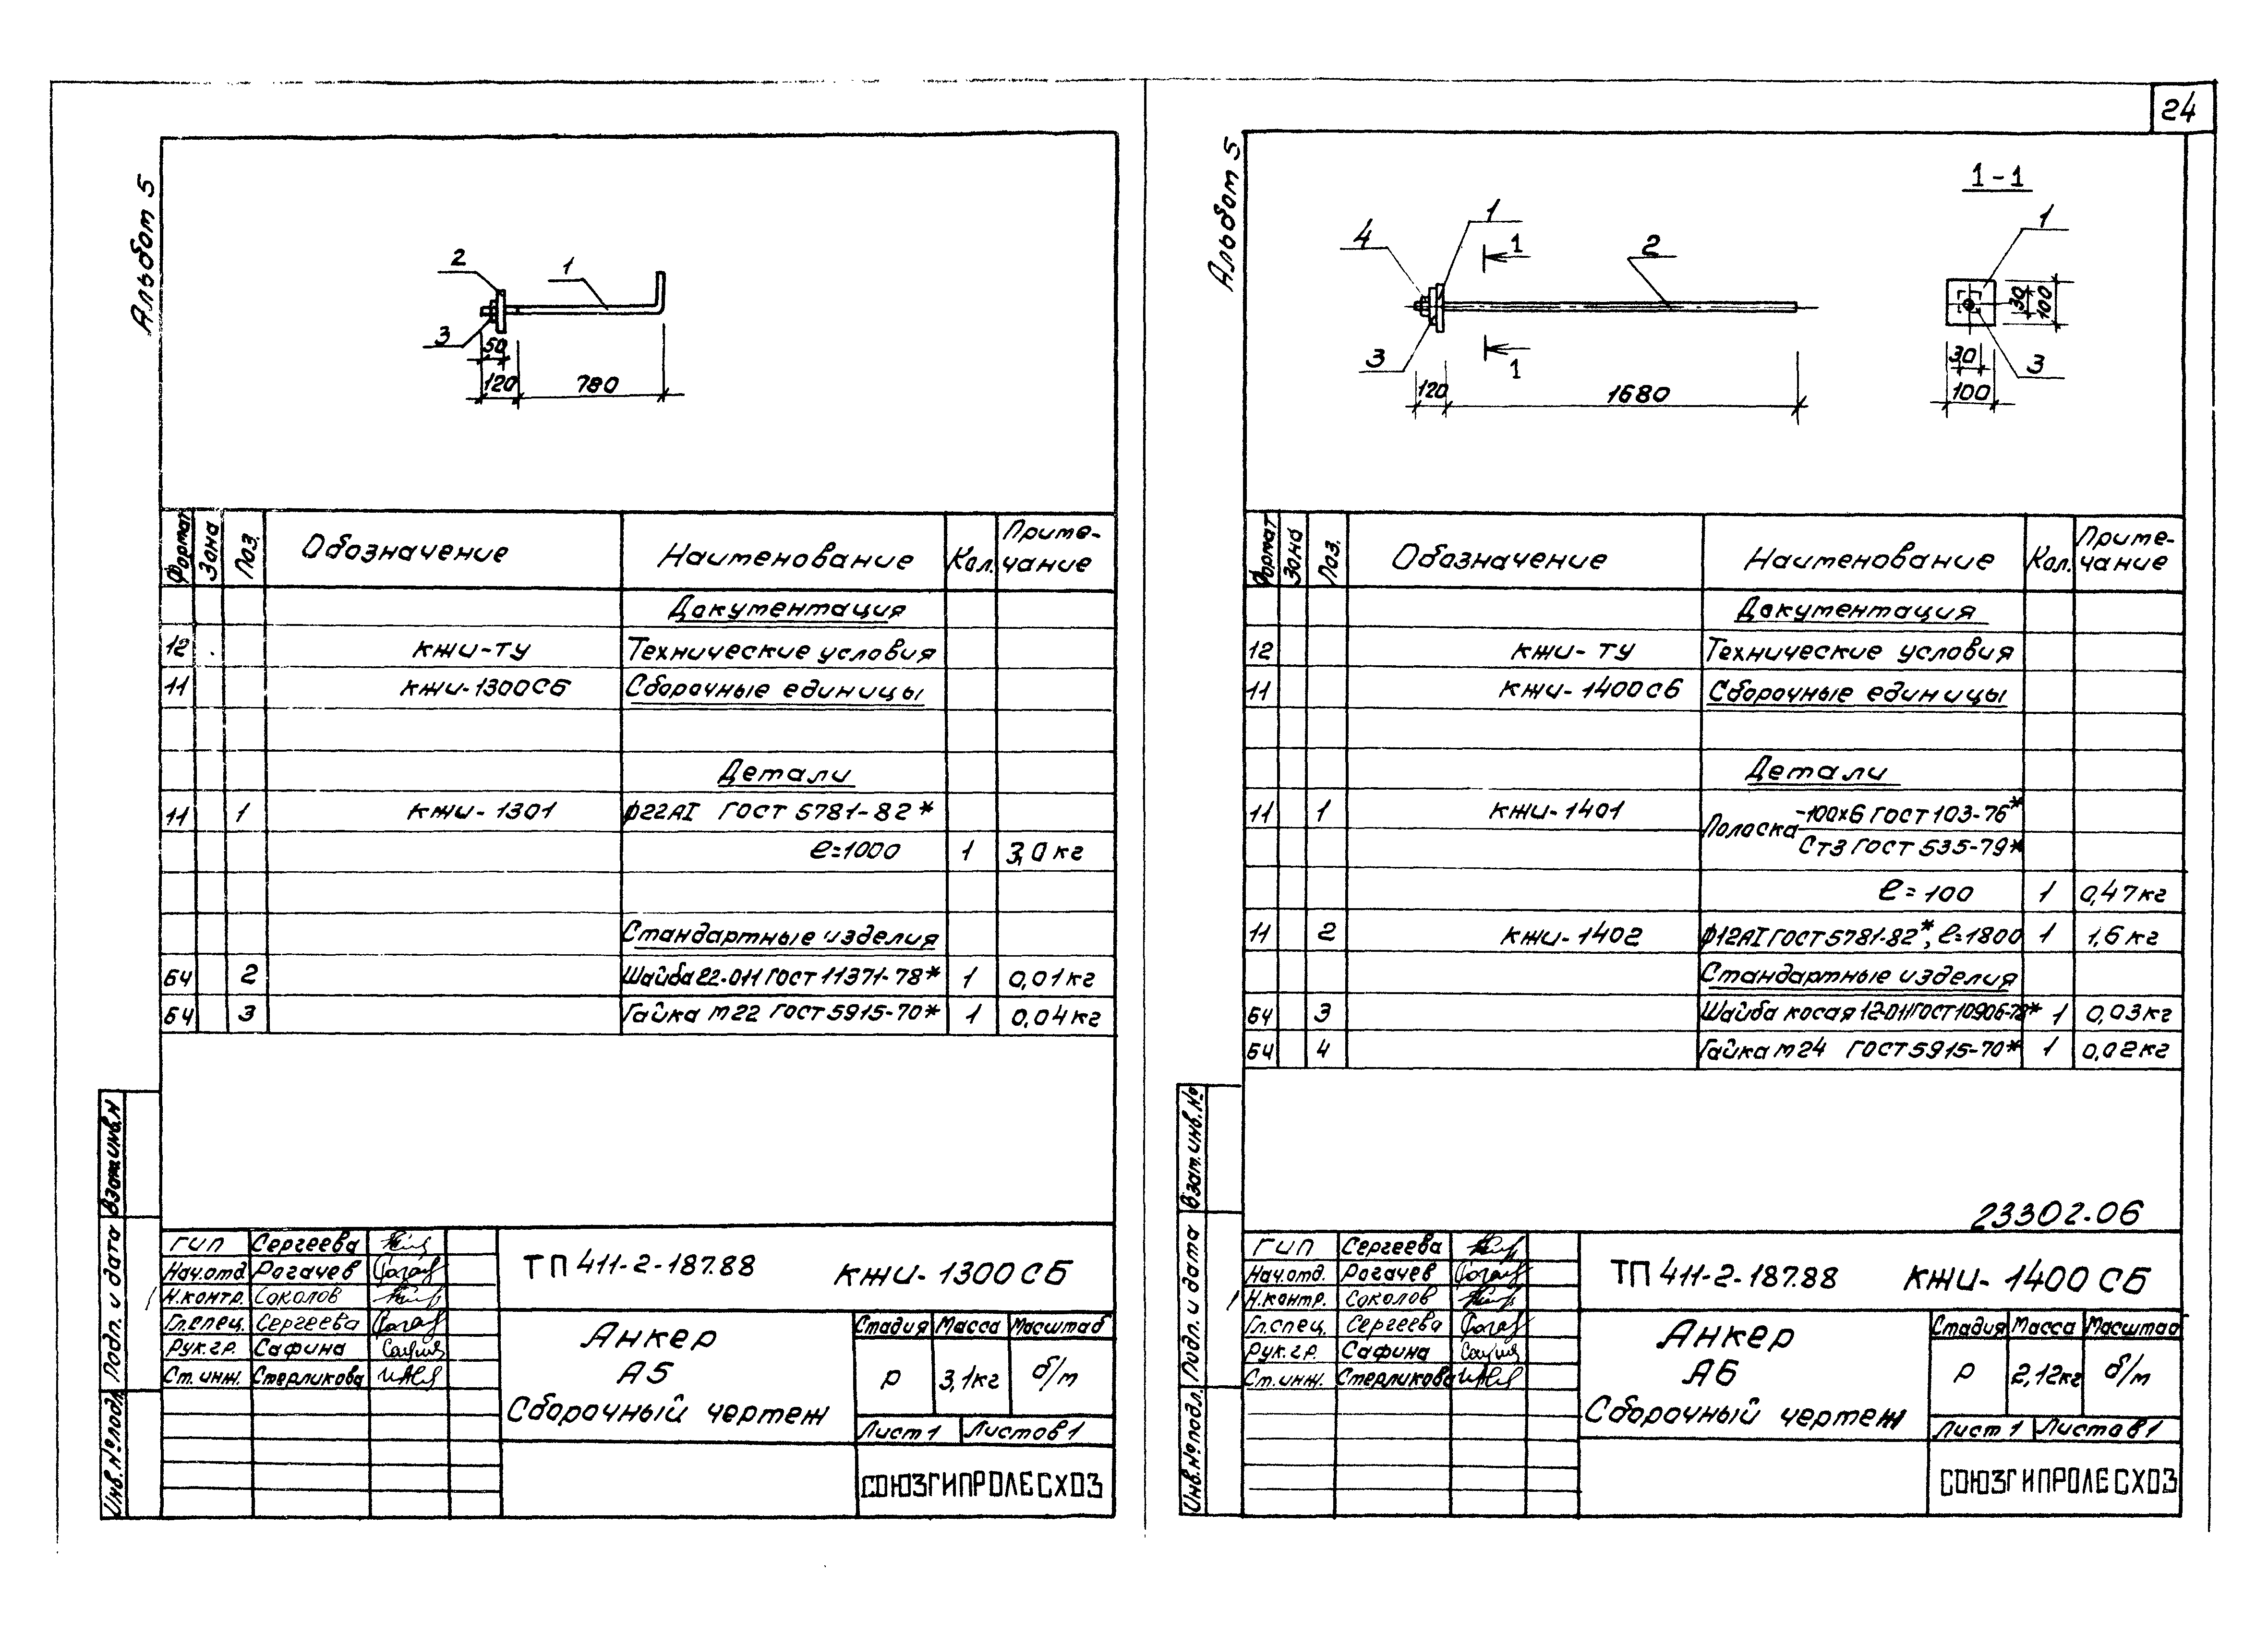 24
Альбом 5
2
1
3
50
120
780
Формат Зона Поз. Обозначение Наименование Кол. Приме-чание
Документация
12 КЖИ-ТУ Технические условия
11 КЖИ-1300СБ Сборочные единицы
Детали
11 1 КЖИ-1301 ф22АI ГОСТ 5781-82*
ℓ=1000 1 3,0кг
Стандартные изделия
БЧ 2 Шайба 22.011 ГОСТ 11371-78* 1 0,01кг
БЧ 3 Гайка М22 ГОСТ 5915-70* 1 0,04кг
Взам.инв.N
Подп. и дата
Инв.№подл.
ГИП Сергеева
Нач.отд Рогачев
Н.контр. Соколов
Гл.спец. Сергеева
Рук.гр. Сафина
Ст.инж. Стерликова
ТП 411-2-187.88 КЖИ-1300СБ
Анкер
А5
Сборочный чертеж
Стадия Масса Масштаб
Р 3,1кг б/м
Лист 1 Листов 1
СОЮЗГИПРОЛЕСХОЗ
Альбом 5
1-1
4
1
1
2
3
1
120
1680
1
30
100
30
100
3
Формат Зона Поз. Обозначение Наименование Кол. Приме-чание
Документация
12 КЖИ-ТУ Технические условия
11 КЖИ-1400СБ Сборочные единицы
Детали
11 1 КЖИ-1401 Полоска -100х6 ГОСТ 103-76*
Ст3 ГОСТ 535-79*
ℓ=100 1 0,47кг
11 2 КЖИ-1402 ф12АI ГОСТ 5781-82*, ℓ=1800 1 1,6кг
Стандартные изделия
БЧ 3 Шайба косая 12.011 ГОСТ 10906-78* 1 0,03кг
БЧ 4 Гайка М24 ГОСТ 5915-70* 1 0,02кг
23302-06
Взам.инв.№
Подп. и дата
Инв.№подл.
ГИП Сергеева
Нач.отд. Рогачев
Н.контр. Соколов
Гл.спец. Сергеева
Рук.гр. Сафина
Ст.инж. Стерликова
ТП 411-2-187.88 КЖИ-1400СБ
Анкер
А6
Сборочный чертеж
Стадия Масса Масштаб
Р 2,12кг б/м
Лист 1 Листов 1
СОЮЗГИПРОЛЕСХОЗ